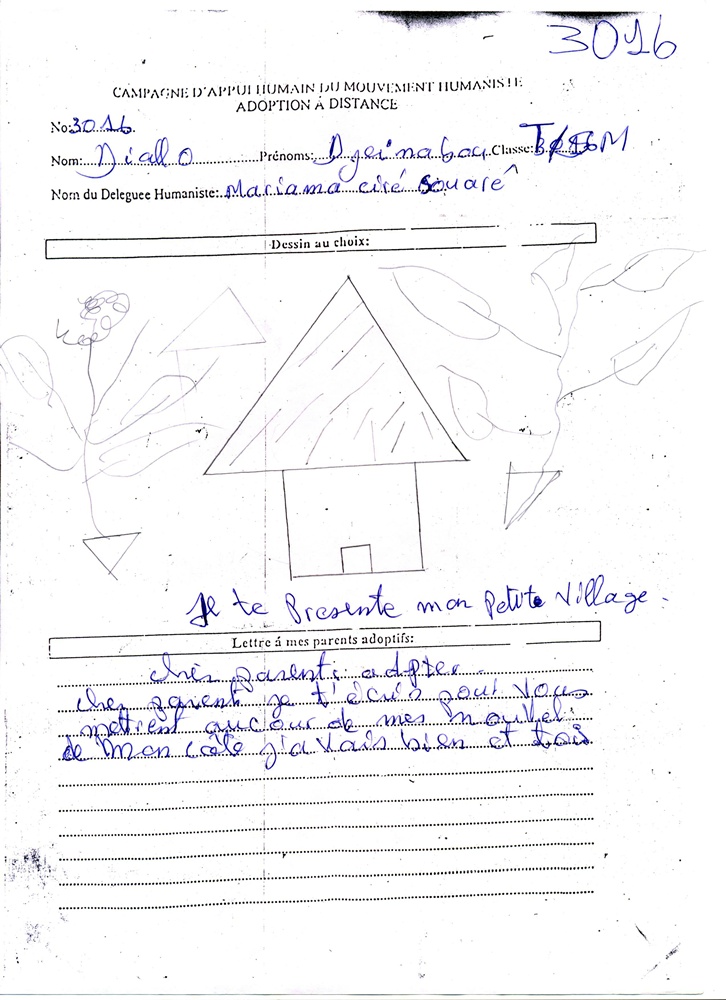 3016
CAMPAGNE D'APPUI HUMAIN DU MOUVEMENT HUMANISTE
ADOPTION Á DISTANCE
No:3016
Nom: Diallo Prénoms: Djeinabou Classe:
Nom du Deleguee Humaniste: Mariama ciré Souaré
Dessin au choix:
Je te Presente mon Petite Village.
Lettre á mes parents adoptifs:
cher parent: adpter
cher parent je t'écris pour vous
metient aucour de mes Nouvel.
de mon côté j'avais bien et tois